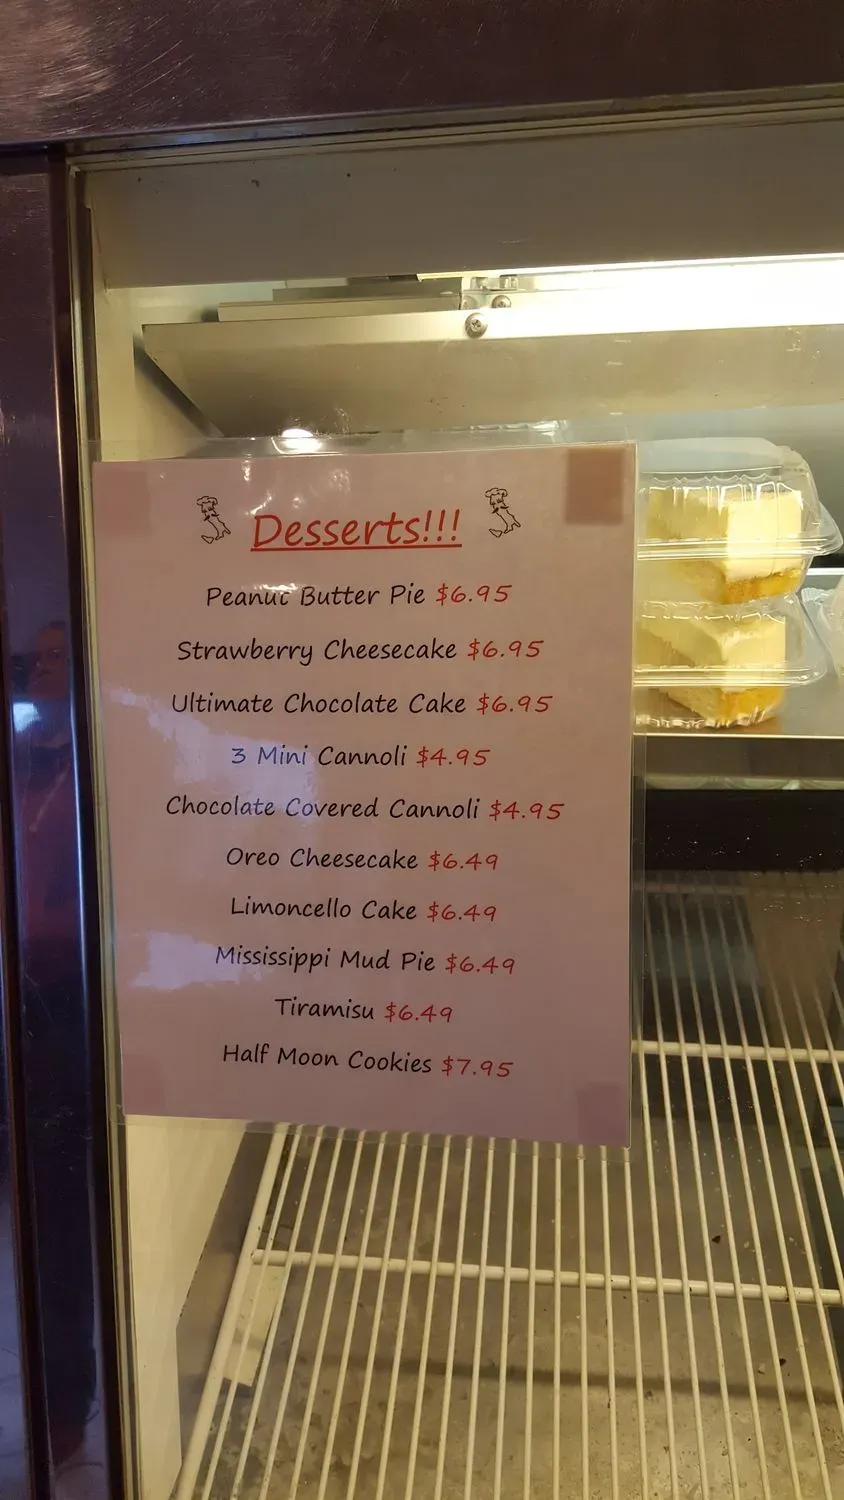 Desserts!!!
Peanut Butter Pie $6.95
Strawberry Cheesecake $6.95
Ultimate Chocolate Cake $6.95
3 Mini Cannoli $4.95
Chocolate Covered Cannoli $4.95
Oreo Cheesecake $6.49
Limoncello Cake $6.49
Mississippi Mud Pie $6.49
Tiramisu $6.49
Half Moon Cookies $7.95